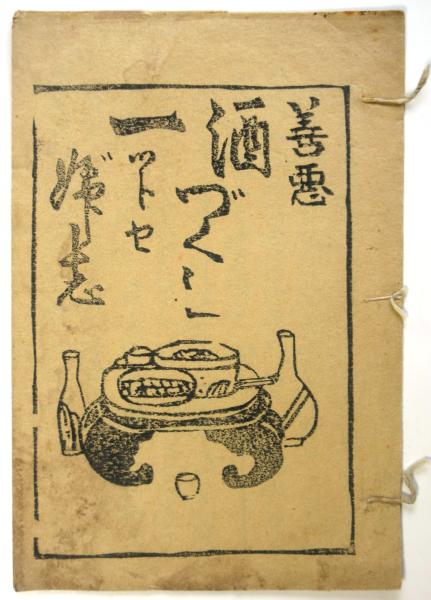 善悪
酒づくし
一ツトセ
ぶ志